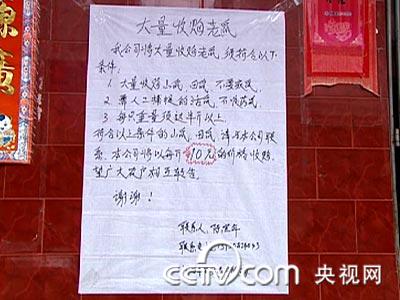 大量收购老鼠
我公司将大量收购老鼠,须符合以下
条件:
1 大量收购山鼠、田鼠,不要家鼠.
2 要人工捕捉的活鼠,不收药鼠.
3 每只重量须达半斤以上
符合以上条件的山鼠、田鼠,请与本公司联
系.本公司将以每斤10元的价格收购.
望广大农户相互转告.
谢谢!
联系人:陈
联系电
cctv.com 央视网